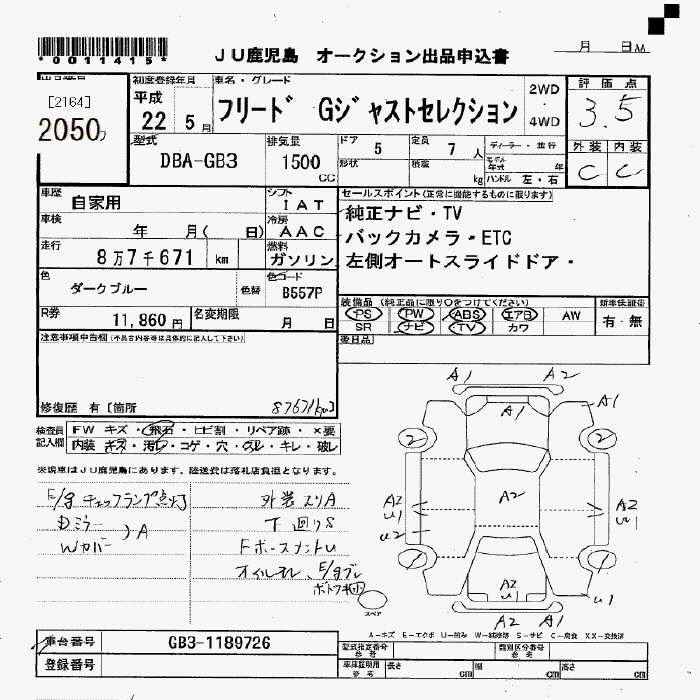 *0011415*
JU鹿児島 オークション出品申込書
月 日
[2164]
2050
初度登録年月
平成
22 5月
車名・グレード
フリード Gジャストセレクション
2WD
・
4WD
評価点
3.5
外装 内装
C C
型式
DBA-GB3
排気量
1500
cc
ドア
5
定員
7人
ディーラー・並行
形状
積載
kg
モデル年式
年
ハンドル 左・右
車歴
自家用
シフト
IAT
車検
年 月( 日)
冷房
AAC
走行
8万7千671 km
燃料
ガソリン
セールスポイント(正常に機能するものに限ります)
純正ナビ・TV
バックカメラ・ETC
左側オートスライドドア・
色
ダークブルー
色替
色コード
B557P
R券
11,860円
名変期限
月 日
装備品(純正品に限り○をつけてください)
PS PW ABS エアB AW
SR ナビ TV カワ
新車保証書
有・無
後日品
注意事項申告欄(不具合内容等は具体的に記入して下さい)
修復歴 有〔箇所
87671km〕
検査員記入欄
FW キズ・飛石・ヒビ割・リペア跡・×要
内装 キズ・汚レ・コゲ・穴・スレ・キレ・破レ
※現車はJU鹿児島にあります、陸送費は落札店負担となります。
E/gチェックランプ点灯
Dミラー
Wカバー )A
外装スリA
下回りS
FホースメントU
オイルモレ、E/gブレ
A1 A2
A1
A1
2 2
A2
U1
U2
A2
A2
U1
1 1
A2
U1
U1
A2 A1
スペア
A−キズ E−エクボ U−凹み W−補修跡 S−サビ C−腐食 XX−交換済
車台番号
GB3-1189726
登録番号
型式指定番号
参考
類別区分番号
参考
車庫証明用
参考
長さ
cm
幅
cm
高さ
cm